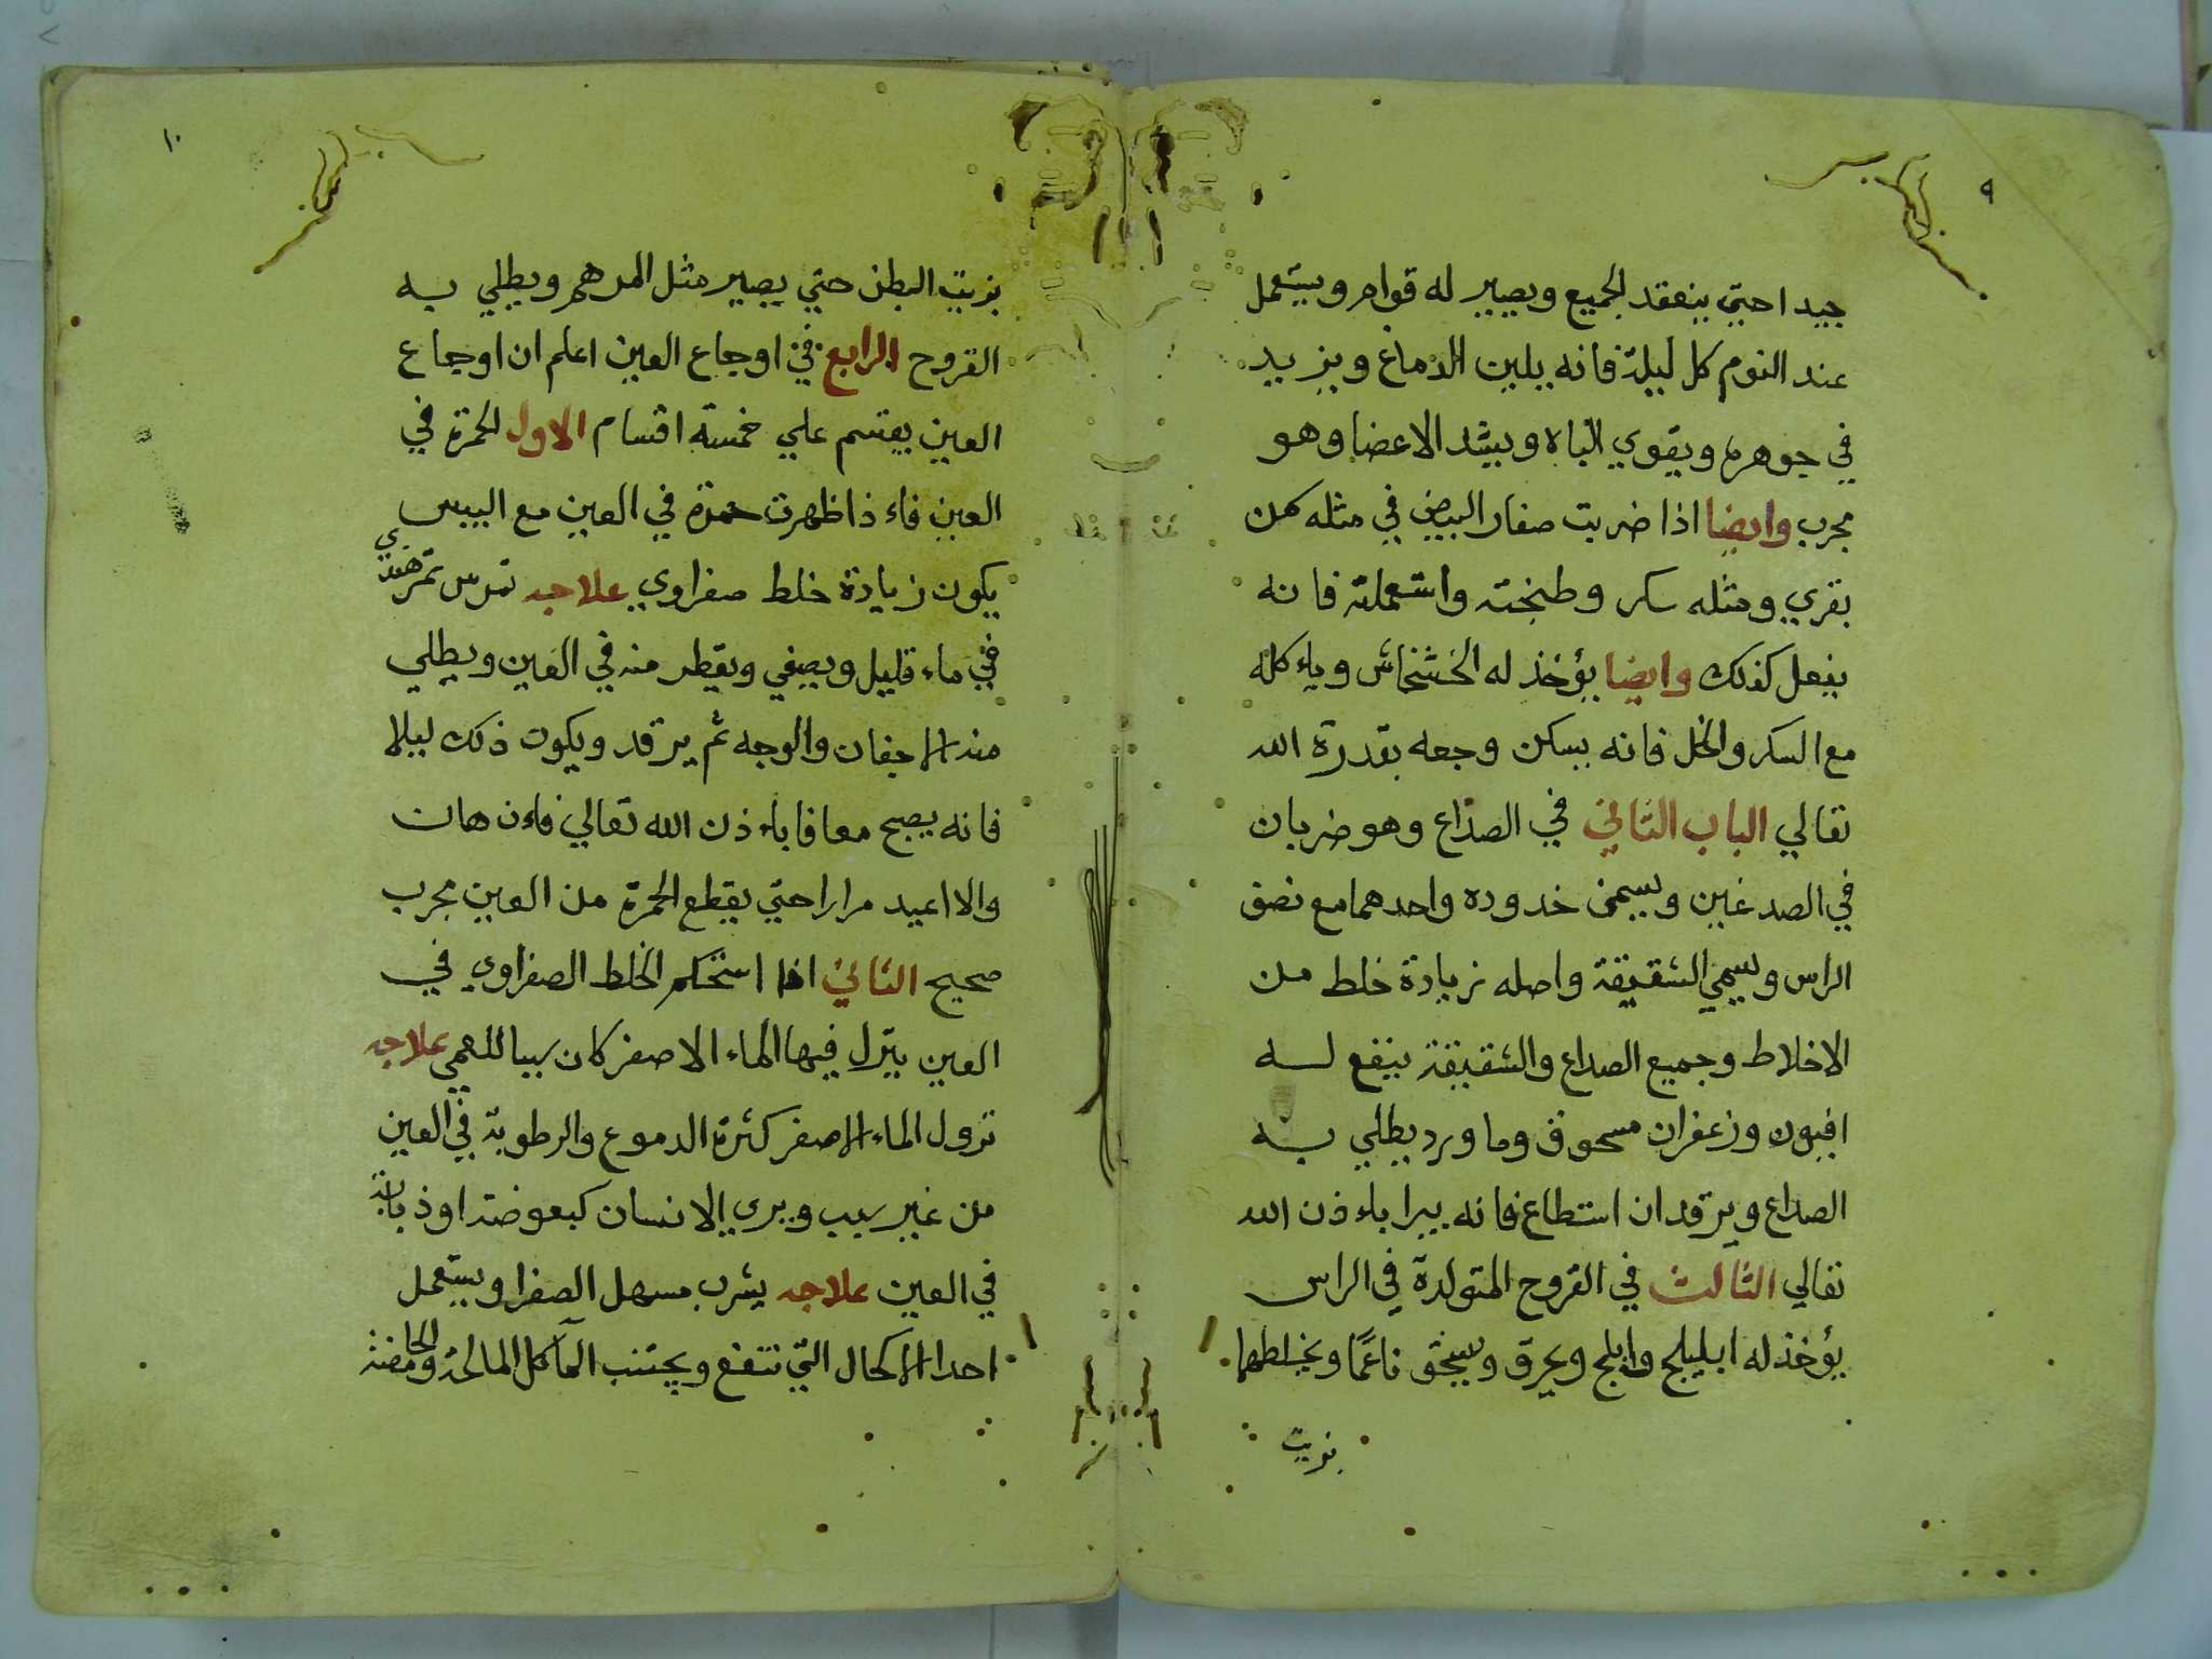 ٩
جيدا حتي ينعقد الجميع ويصير له قوام ويستعمل
عند النوم كل ليلة فانه يلين الدماغ ويزيد
في جوهره ويقوي الباه ويشد الاعضا وهو
مجرب وايضا اذا ضربت صفار البيض في مثله سمن
بقري ومثله سكر وطبخته واستعملته فانه
يفعل كذلك وايضا يؤخذ له الخشخاش وياءكله
مع السكر والخل فانه يسكن وجعه بقدرة الله
تعالي الباب الثاني في الصداع وهو ضربان
في الصدغين ويسمى خدوده واحدهما مع نصف
الراس ويسمي الشقيقة واصله زيادة خلط من
الاخلاط وجميع الصداع والشقيقة ينفع له
افيون وزعفران مسحوق وما ورد يطلي به
الصداع ويرقد ان استطاع فانه يبرا باءذن الله
تعالي الثالث في القروح المتولدة في الراس
يؤخذ له ابليلج واملج ويحرق ويسحق ناعمًا ويخلطها
بزيت
١٠
بزيت البطن حتي يصير مثل المرهم ويطلي به
القروح الرابع في اوجاع العين اعلم ان اوجاع
العين يقتسم علي خمسة اقسام الاول الحمرة في
العين فاءذا ظهرت حمرة في العين مع اليبس
يكون زيادة خلط صفراوي علاجه تمرس تمرهندي
في ماء قليل ويصفي ويقطر منه في العين ويطلي
منه الاجفان والوجه ثم يرقد ويكون ذلك ليلا
فانه يصبح معافا باءذن الله تعالي فاءن هان
والا اعيد مرارا حتي يقطع الحمرة من العين مجرب
صحيح الثاني اذا استحكم الخلط الصفراوي في
العين ينزل فيها الماء الاصفر كان سببا للعمي علاجه
نزول الماء الاصفر كثرة الدموع والرطوبة في العين
من غير سبب ويري الانسان كبعوضة او ذبابة
في العين علاجه يشرب مسهل الصفرا ويستعمل
احدا الاكحال التي تنفع ويجتنب المآكل المالحة والحامضة